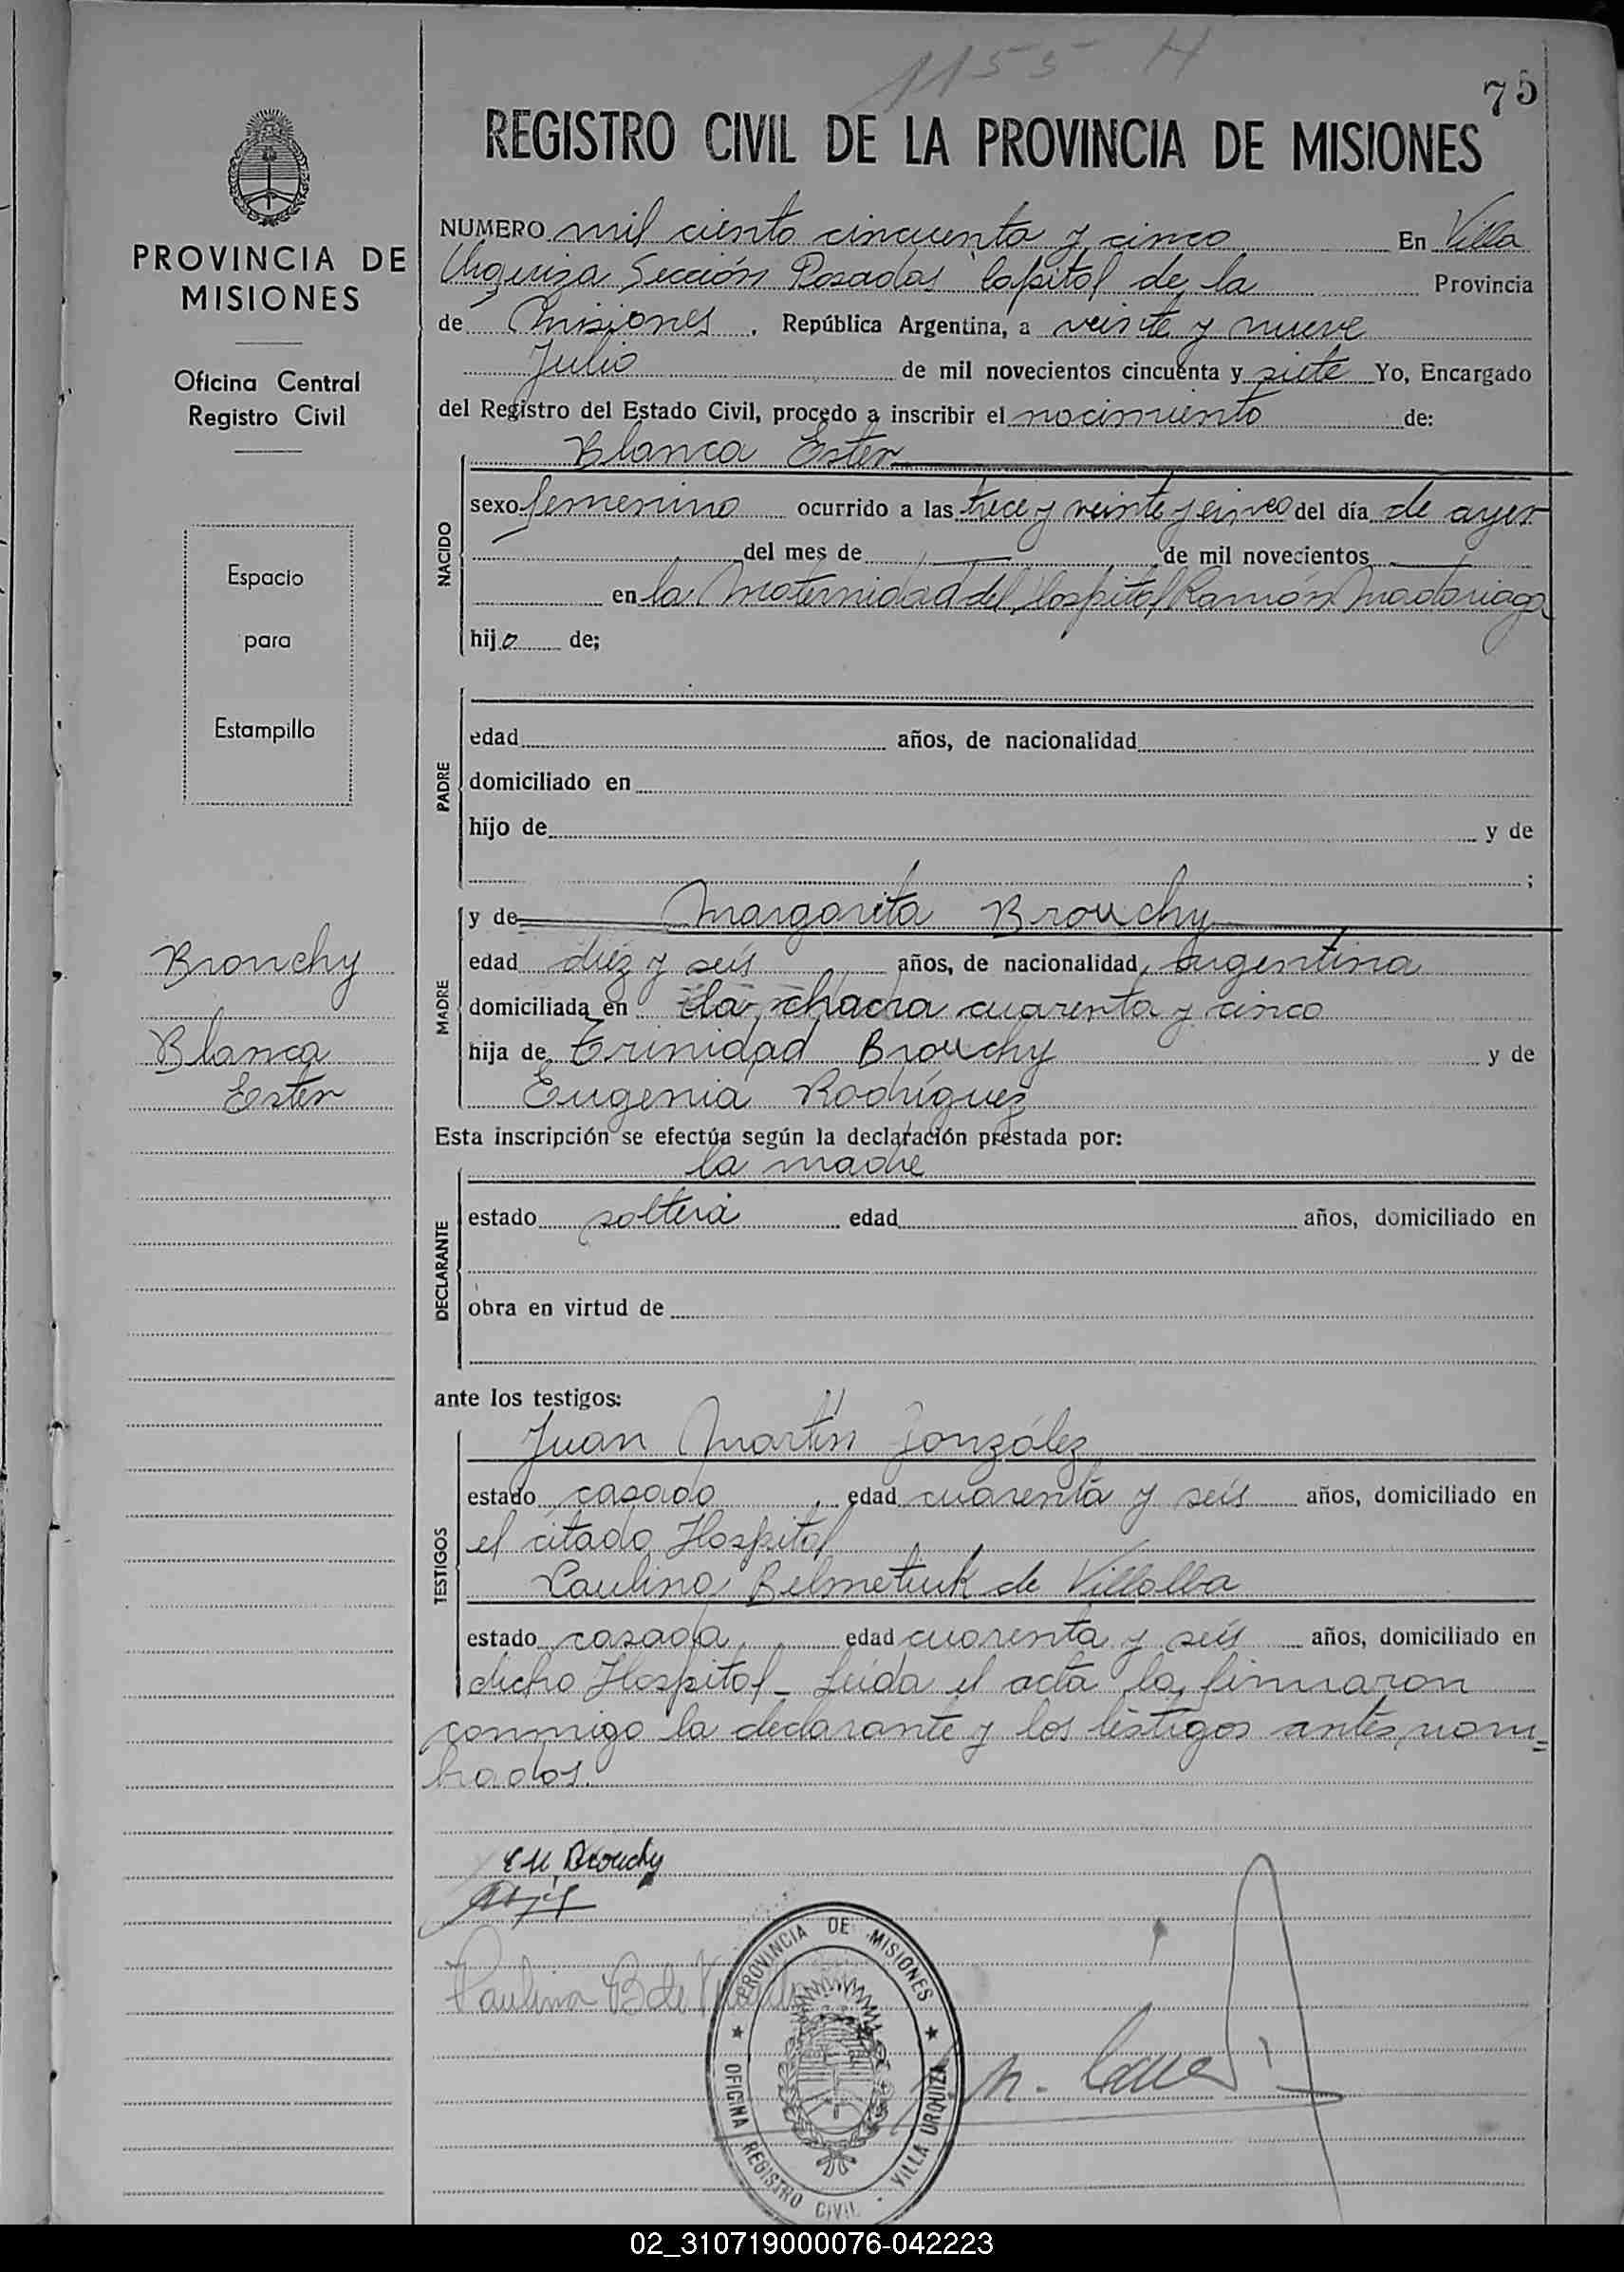 1155 H
75
REGISTRO CIVIL DE LA PROVINCIA DE MISIONES
PROVINCIA DE
MISIONES
Oficina Central
Registro Civil
Espacio
para
Estampilla
Bronchy
Blanca
Ester
NUMERO mil ciento cincuenta y cinco En Villa
Urquiza Sección Posadas Capital de la Provincia
de Misiones. República Argentina, a veinte y nueve
Julio de mil novecientos cincuenta y siete Yo, Encargado
del Registro del Estado Civil, procedo a inscribir el nacimiento de:
Blanca Ester
NACIDO
sexo femenino ocurrido a las trece y veinte y cinco del día de ayer
del mes de de mil novecientos
en la Maternidad del Hospital Ramón Madariaga
hija de;
PADRE
edad años, de nacionalidad
domiciliado en
hijo de y de
;
MADRE
y de Margarita Brouchy
edad diez y seis años, de nacionalidad argentina
domiciliada en la chacra cuarenta y cinco
hija de Trinidad Brouchy y de
Eugenia Rodríguez
Esta inscripción se efectúa según la declaración prestada por:
la madre
DECLARANTE
estado soltera edad años, domiciliado en
obra en virtud de
ante los testigos:
TESTIGOS
Juan Martín González
estado casado edad cuarenta y seis años, domiciliado en
el citado Hospital
Paulina Belmetiuk de Villalba
estado casada edad cuarenta y seis años, domiciliado en
dicho Hospital - Leída el acta la firmaron
conmigo la declarante y los testigos antes nom=
brados.
E M Brouchy
Paulina B de
PROVINCIA DE MISIONES
OFICINA REGISTRO CIVIL · VILLA URQUIZA
02_310719000076-042223